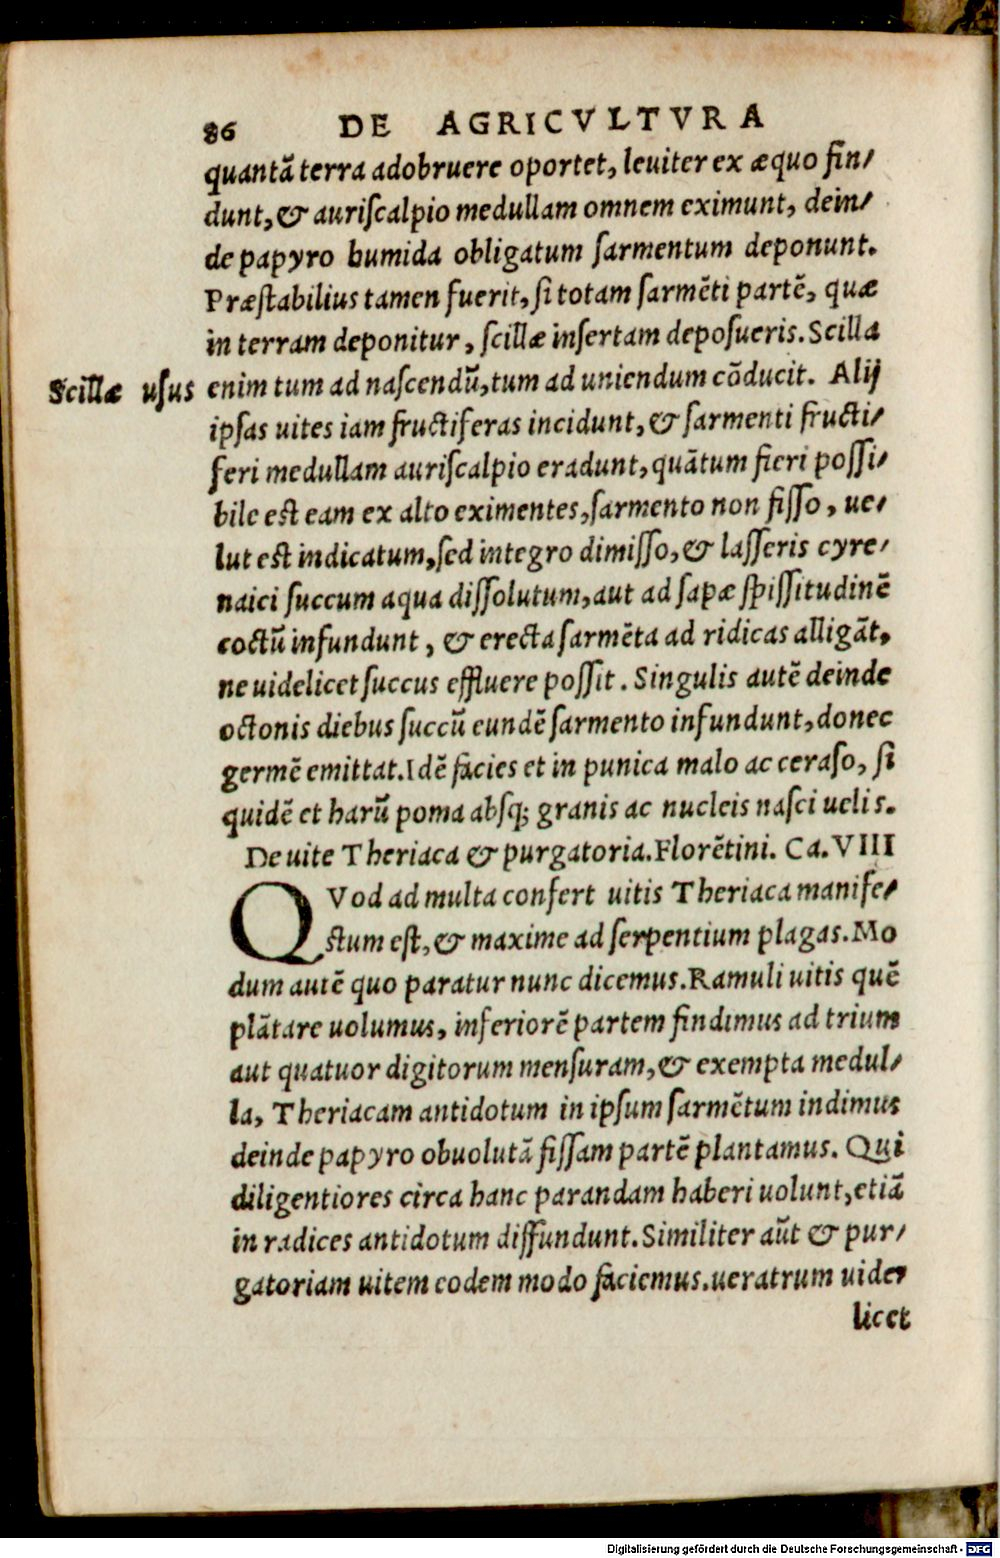 86 DE AGRICVLTVRA
quantã terra adobruere oportet, leuiter ex æquo fin/
dunt, & auriscalpio medullam omnem eximunt, dein/
de papyro humida obligatum sarmentum deponunt.
Præstabilius tamen fuerit, si totam sarmẽti partẽ, quæ
in terram deponitur, scillæ insertam deposueris. Scilla
Scillæ usus
enim tum ad nascendũ, tum ad uniendum cõducit. Alij
ipsas uites iam fructiferas incidunt, & sarmenti fructi/
feri medullam auriscalpio eradunt, quãtum fieri possi/
bile est eam ex alto eximentes, sarmento non fisso, ue/
lut est indicatum, sed integro dimisso, & lasseris cyre/
naici succum aqua dissolutum, aut ad sapæ spissitudinẽ
coctũ infundunt, & erecta sarmẽta ad ridicas alligãt,
ne uidelicet succus effluere possit. Singulis autẽ deinde
octonis diebus succũ eundẽ sarmento infundunt, donec
germẽ emittat. Idẽ facies et in punica malo ac ceraso, si
quidẽ et harũ poma absq; granis ac nucleis nasci uelis.
De uite Theriaca & purgatoria. Florẽtini. Ca. VIII
QVod ad multa confert uitis Theriaca manife/
stum est, & maxime ad serpentium plagas. Mo
dum autẽ quo paratur nunc dicemus. Ramuli uitis quẽ
plãtare uolumus, inferiorẽ partem findimus ad trium
aut quatuor digitorum mensuram, & exempta medul/
la, Theriacam antidotum in ipsum sarmẽtum indimus
deinde papyro obuolutã fissam partẽ plantamus. Qui
diligentiores circa hanc parandam haberi uolunt, etiã
in radices antidotum diffundunt. Similiter aũt & pur/
gatoriam uitem eodem modo faciemus. ueratrum uide/
licet
Digitalisierung gefördert durch die Deutsche Forschungsgemeinschaft - DFG